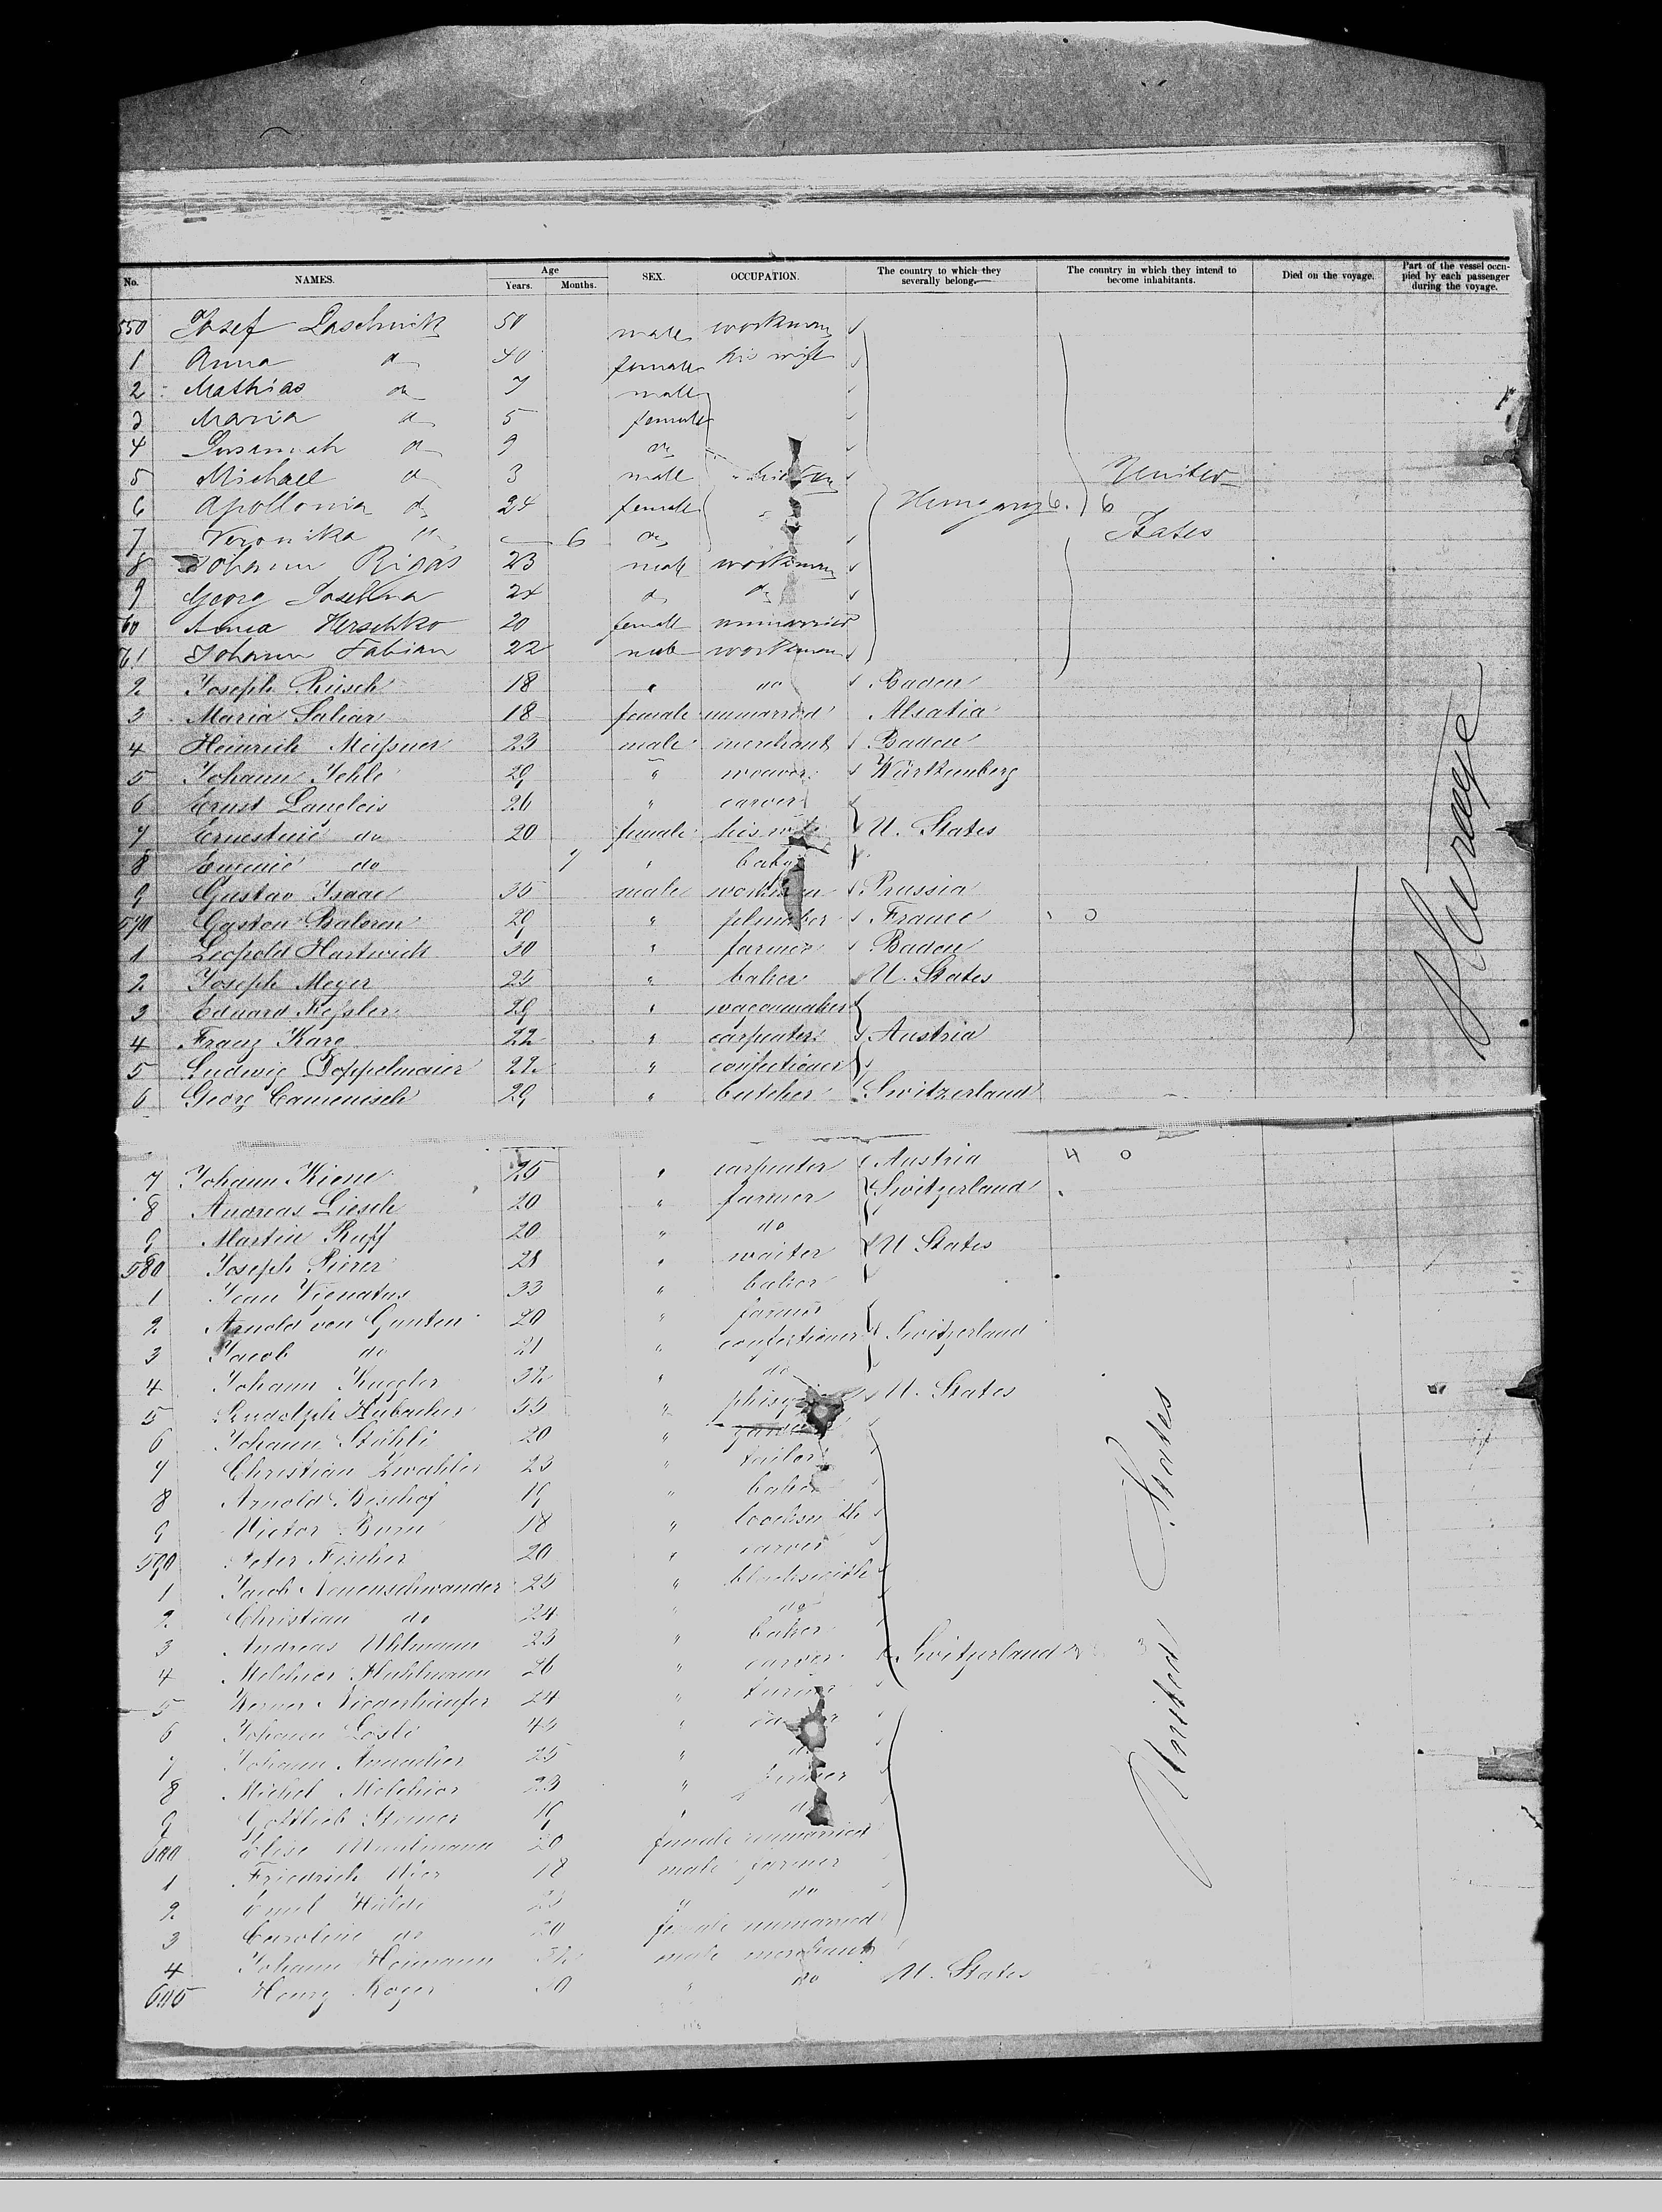 No. NAMES. Age Years. Months. SEX. OCCUPATION. The country to which they severally belong. The country in which they intend to become inhabitants. Died on the voyage. Part of the vessel occupied by each passenger during the voyage.
550 Josef 50 male workman
1 Anna do 40 female his wife
2 Mathias do 7 male
3 Maria do 5 female
4 Susannah do 9 do
5 Michael do 3 male children United
6 Apollonia do 24 female Hungary 6. 6
7 Veronika do 6 do States
8 Johann Rigas 23 male workman
9 Georg 24 do do
60 Anna Herschko 20 female unmarried
61 Johann Fabian 22 male workman
2 Joseph Rüsch 18 " do Baden
3 Maria 18 female unmarried Alsatia
4 Heinrich Meißner 23 male merchant Baden
5 Johann Jehle 29 " weaver Württemberg
6 Ernst Langlois 26 " carver
7 Ernestine do 20 female his wife U. States
8 Eugenie do 7 " baby
9 Gustav Isaac 35 male workman Prussia
570 Gaston 29 " plumber France 0
1 Leopold Hartwich 30 " farmer Baden
2 Joseph Meyer 25 " baker U. States
3 Eduard Keßler 29 " wagonmaker
4 Franz Karg 22 " carpenter Austria
5 Ludwig Doppelmaier 22 " confectioner
6 Georg Camenisch 29 " butcher Switzerland
Steerage
7 Johann Kiene 25 " carpenter Austria 4 0
8 Andreas Liesch 20 " farmer Switzerland
9 Martin Ruff 20 " do
580 Joseph Pierer 28 " waiter U States
1 Jean Vienatus 33 " baker
2 Arnold von Gunten 20 " farmer
3 Jacob do 21 " confectioner Switzerland
4 Johann Kugler 32 " do
5 Rudolph Hubacher 55 " U. States
6 Johann Stähli 20 "
7 Christian Zwahlen 23 " tailor
8 Arnold Bischof 19 " baker
9 Victor Burri 18 " locksmith
590 Peter Fischer 20 " carver
1 Jacob Neuenschwander 25 " blacksmith
2 Christian do 24 " do
3 Andreas Uhlmann 23 " baker
4 Melchior 26 " carver Switzerland
5 Werner 24 "
6 Johann 45 "
7 Johann 25 " do
8 Michel Melchior 23 " farmer
9 Gottlieb 19 " do
600 Elise 20 female unmarried
1 Friedrich 18 male farmer
2 Emil 25 " do
3 Caroline do 20 female unmarried
4 Johann Heimann male merchant
605 Henry " do U. States
United States